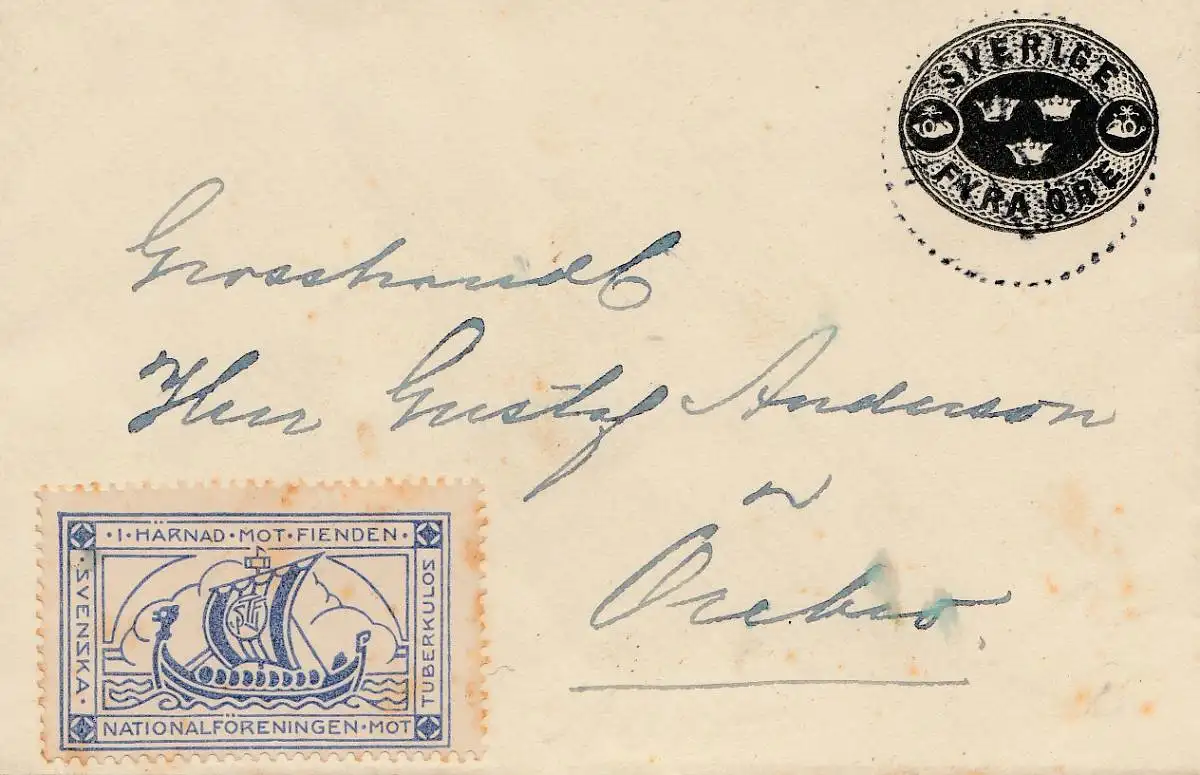 SVERIGE
FYRA ÖRE
Grosshandl
Herr Gustaf Anderson
Örebro
·I·HÄRNAD·MOT·FIENDEN·
SVENSKA·
NATIONALFÖRENINGEN·MOT
TUBERKULOS
STF